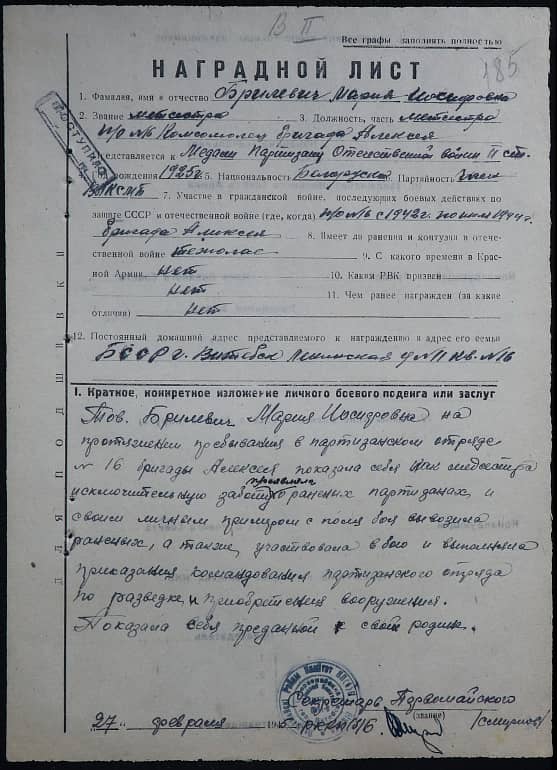 В II
Все графы заполнять полностью
185
НАГРАДНОЙ ЛИСТ
1. Фамилия, имя и отчество Брилевич Мария Иосифовна
2. Звание медсестра 3. Должность, часть медсестра
п/о №16 Комсомолец бригада Алексея
Представляется к Медали Партизану Отечественной войны II ст.
ПОСТУПИЛО
рождения 1925 г. 5. Национальность Белоруска Партийность член
ВЛКСМ 7. Участие в гражданской войне, последующих боевых действиях по
защите СССР и отечественной войне (где, когда) п/о №16 с 1942 г. по 1944 г.
бригада Алексея 8. Имеет ли ранения и контузии в отече-
ственной войне 9. С какого времени в Крас-
ной Армии нет 10. Каким РВК призван
нет 11. Чем ранее награжден (за какие
отличия) нет
12. Постоянный домашний адрес представляемого к награждению и адрес его семьи
БССР г. Витебск Ленинская д №11 кв. №16
для подшивки
I. Краткое, конкретное изложение личного боевого подвига или заслуг
Тов. Брилевич Мария Иосифовна на
протяжении пребывания в партизанском отряде
№ 16 бригады Алексея показала себя как медсестра
проявляла
исключительную заботу о раненых партизанах, и
своим личным примером с поля боя вывозила
раненых, а также, участвовала в бою и выполняла
приказания командования партизанского отряда
по разведке, и приобретения вооружения.
Показала себя преданной к своей родине.
Секретарь Первомайского
27 февраля 194 РК КП(б)Б (звание) /Смирнов/